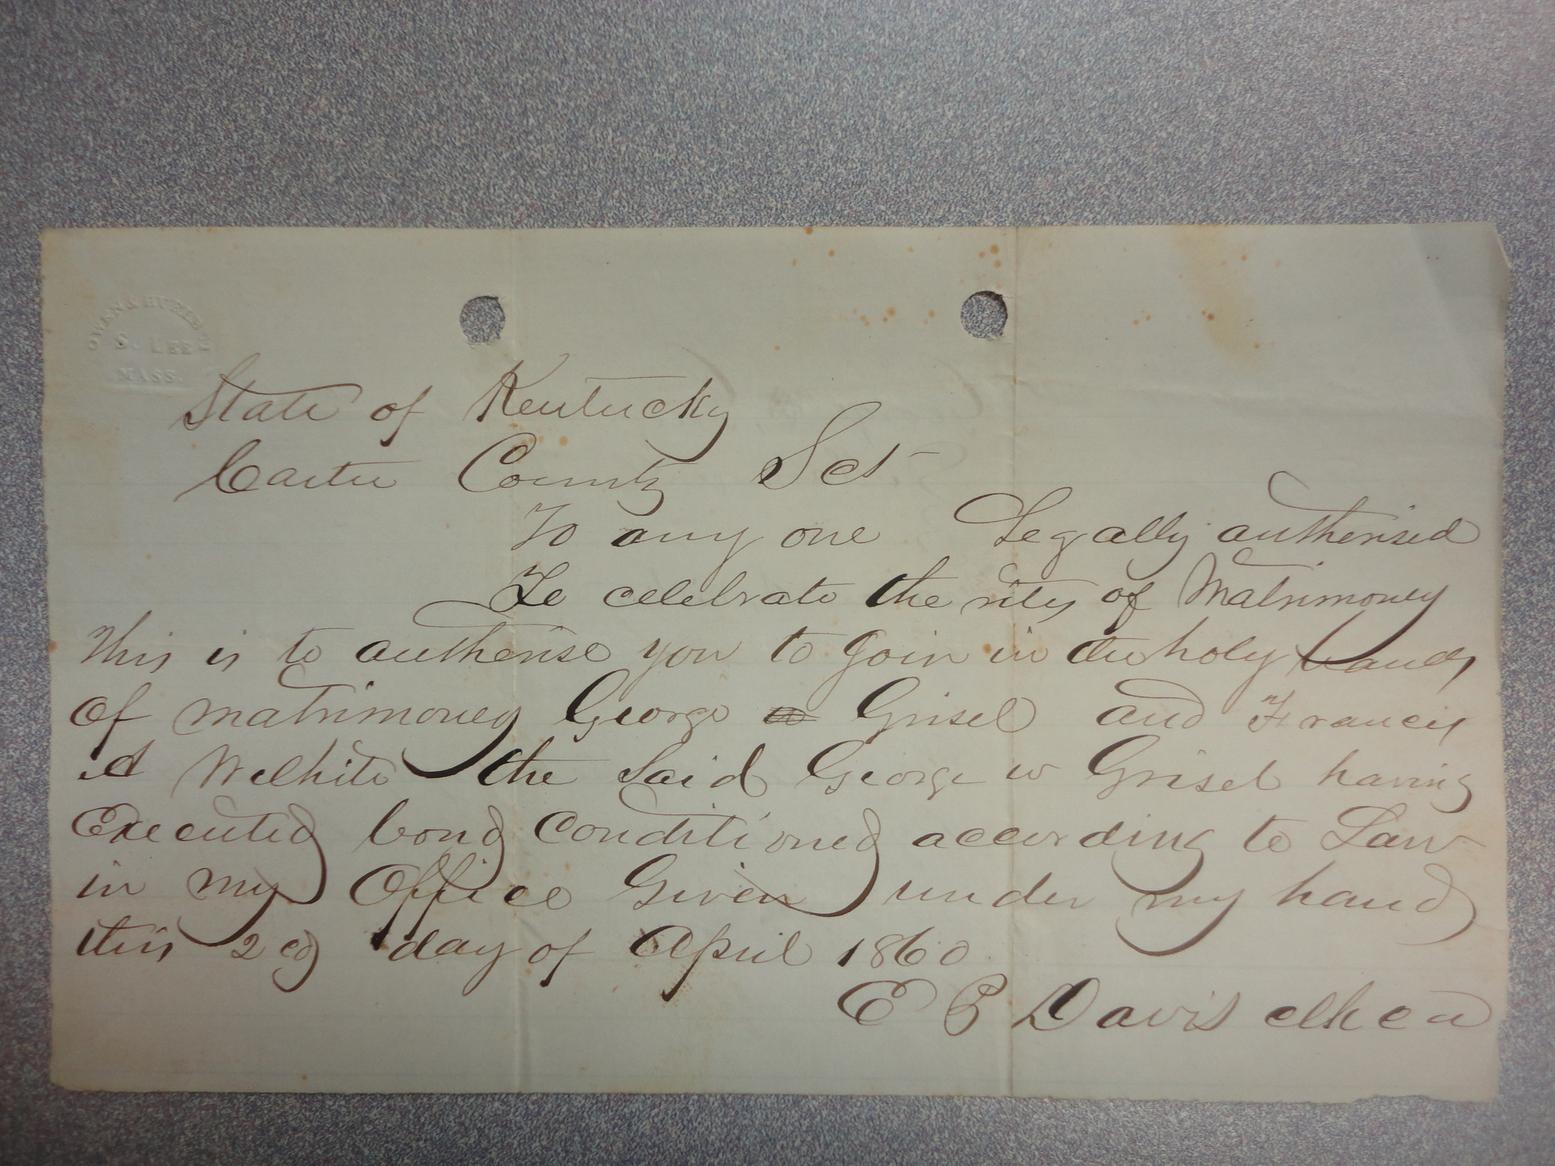 OWEN & HURLBUT
S. LEE
MASS.
State of Kentucky
Carter County Sct
To any one Legally authorised
To celebrate the rites of Matrimoney
This is to autherise you to Join in the holy bands
of matrimoney George Grisel and Francis
A Welhite the Said George W Grisel having
Executed bond Conditioned according to Law
in my Office Given under my hand
this day of April 1860
E B Davis clk